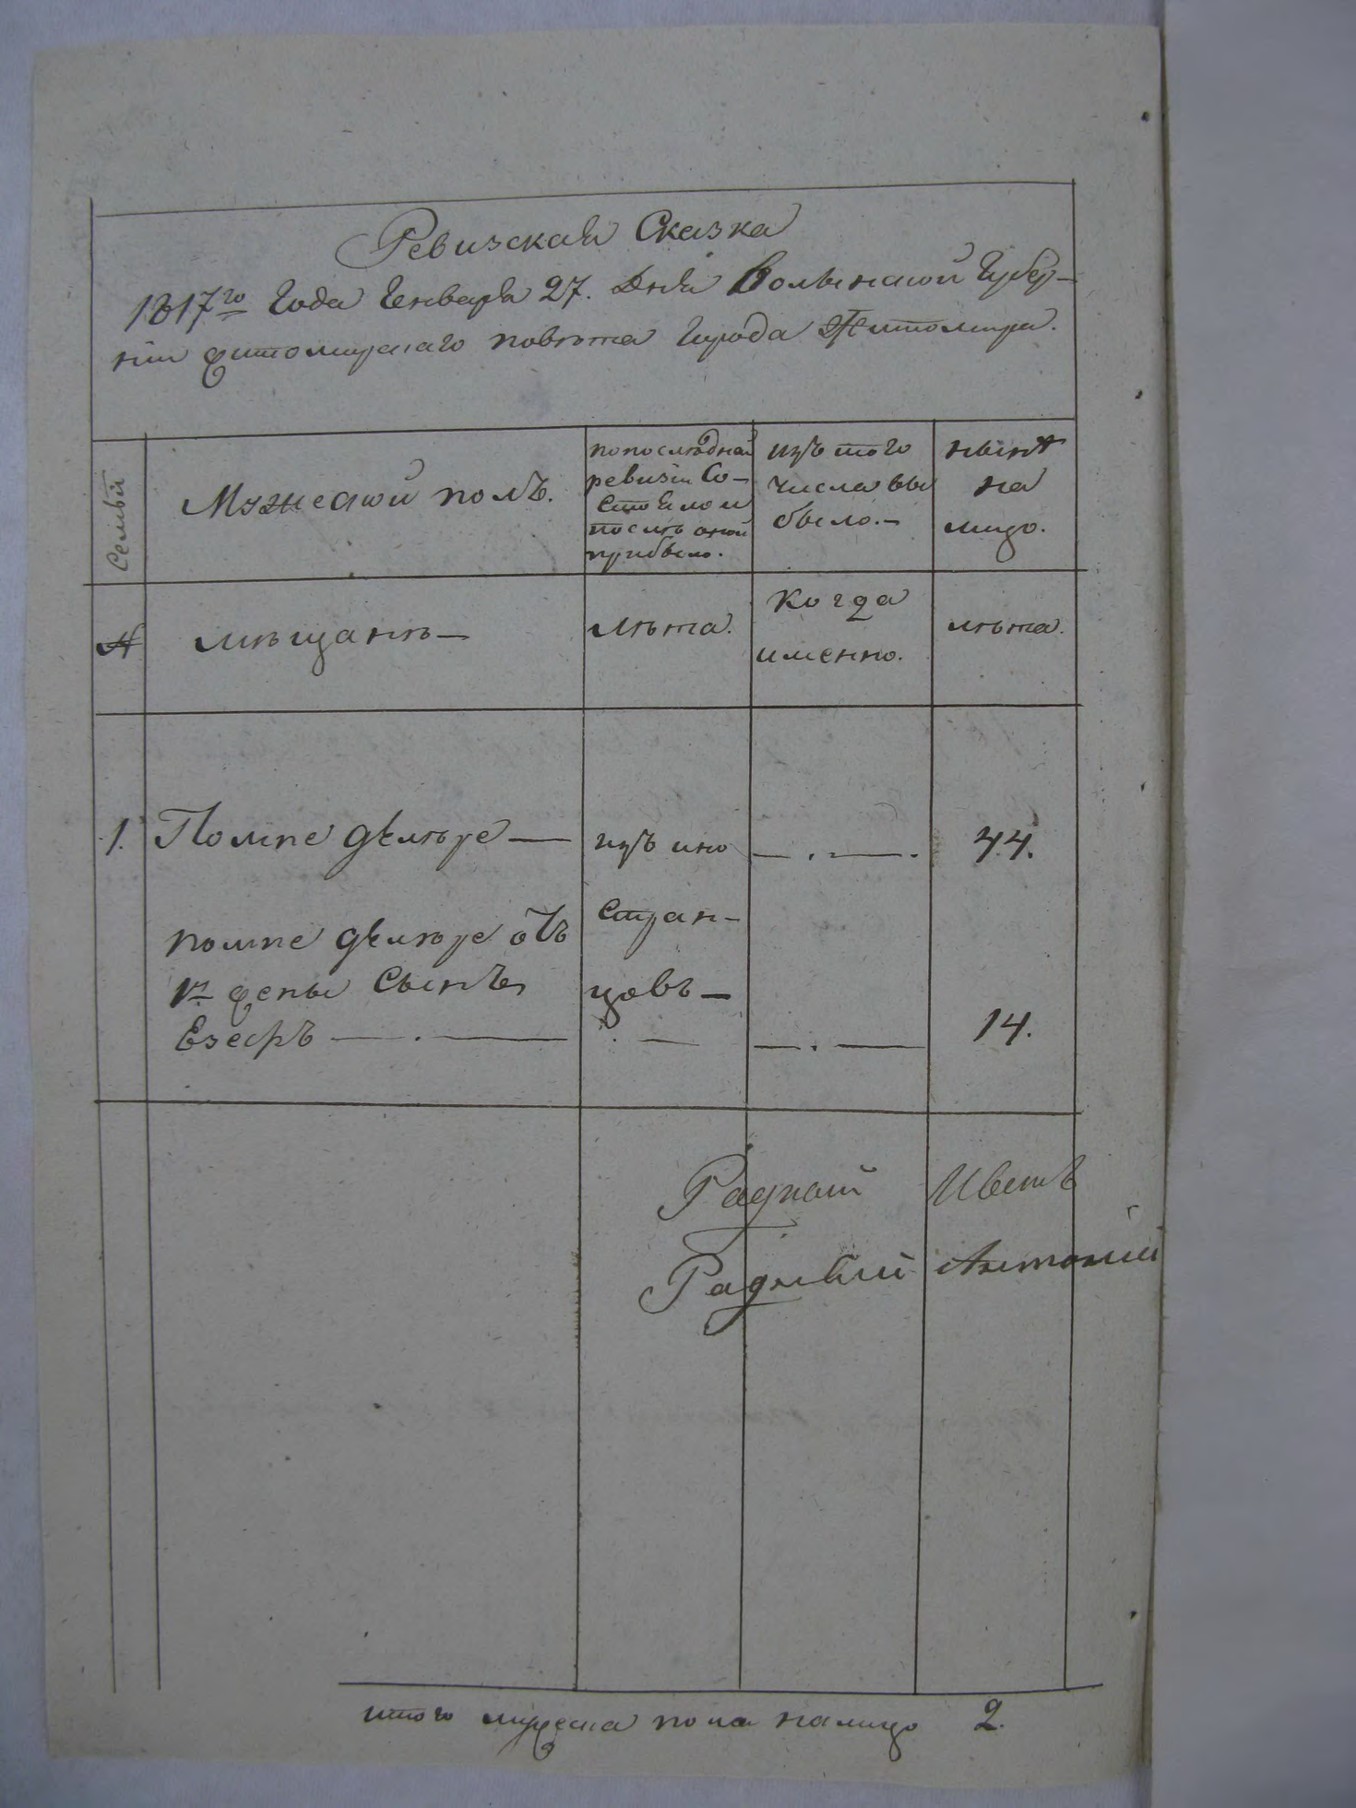 Ревизская Сказка
1817го Года Генваря 27. Дня Волынской Губер-
ніи житомирскаго повѣта Города Житомира.
Семьи
Мужеской полъ.
попоследней
ревизіи Со-
стояло и
послѣ оной
прибыло.
изъ того
числа вы
было.-
нынѣ
на
лицо.
№
мѣщанѣ-
лѣта.
Когда
именно.
лѣта.
1. Помпе Делѣре — изъ ино —.—. 44.
стран-
помпе Делѣре отъ
1й жены Сынъ цовъ —
Езефъ —.— . — —.— 14.
Радный
Радный Антоній
итого мужеска пола налицо 2.